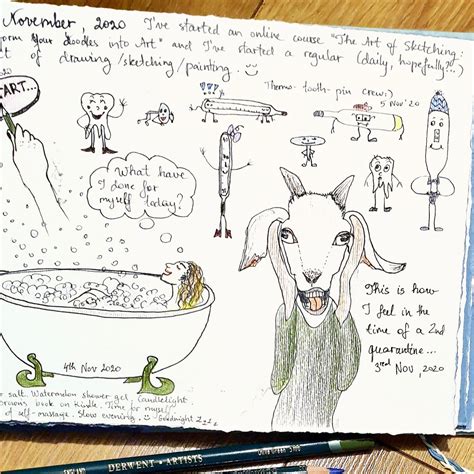 November, 2020 I've started an online course "The Art of Sketching:
form Your doodles into Art" and I've started a regular (daily, hopefully?...)
of drawing/sketching/painting.
2020
START...
Thermo-tooth-pin crew:)
5 Nov '20
What have
I done for
myself today?
This is how
I feel in the
time of a 2nd
quarantine...
3rd Nov, 2020
4th Nov 2020
salt. Watermelon shower gel. Candlelight
book on Kindle. Time for myself
of self-massage. Slow evening. Goodnight Zzzz
DERWENT - ARTISTS